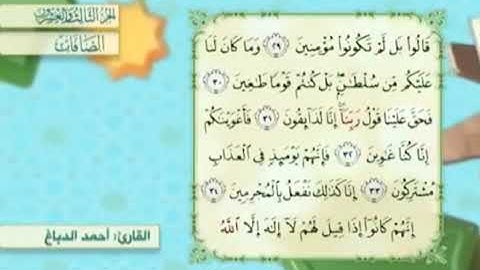 الجزء الثالث والعشرون
الصافات
قَالُوا۟ بَل لَّمْ تَكُونُوا۟ مُؤْمِنِينَ ٢٩ وَمَا كَانَ لَنَا
عَلَيْكُم مِّن سُلْطَٰنٍۭ ۖ بَلْ كُنتُمْ قَوْمًا طَٰغِينَ ٣٠
فَحَقَّ عَلَيْنَا قَوْلُ رَبِّنَآ ۖ إِنَّا لَذَآئِقُونَ ٣١ فَأَغْوَيْنَٰكُمْ
إِنَّا كُنَّا غَٰوِينَ ٣٢ فَإِنَّهُمْ يَوْمَئِذٍ فِى ٱلْعَذَابِ
مُشْتَرِكُونَ ٣٣ إِنَّا كَذَٰلِكَ نَفْعَلُ بِٱلْمُجْرِمِينَ ٣٤
إِنَّهُمْ كَانُوٓا۟ إِذَا قِيلَ لَهُمْ لَآ إِلَٰهَ إِلَّا ٱللَّهُ
القارئ: أحمد الدباغ